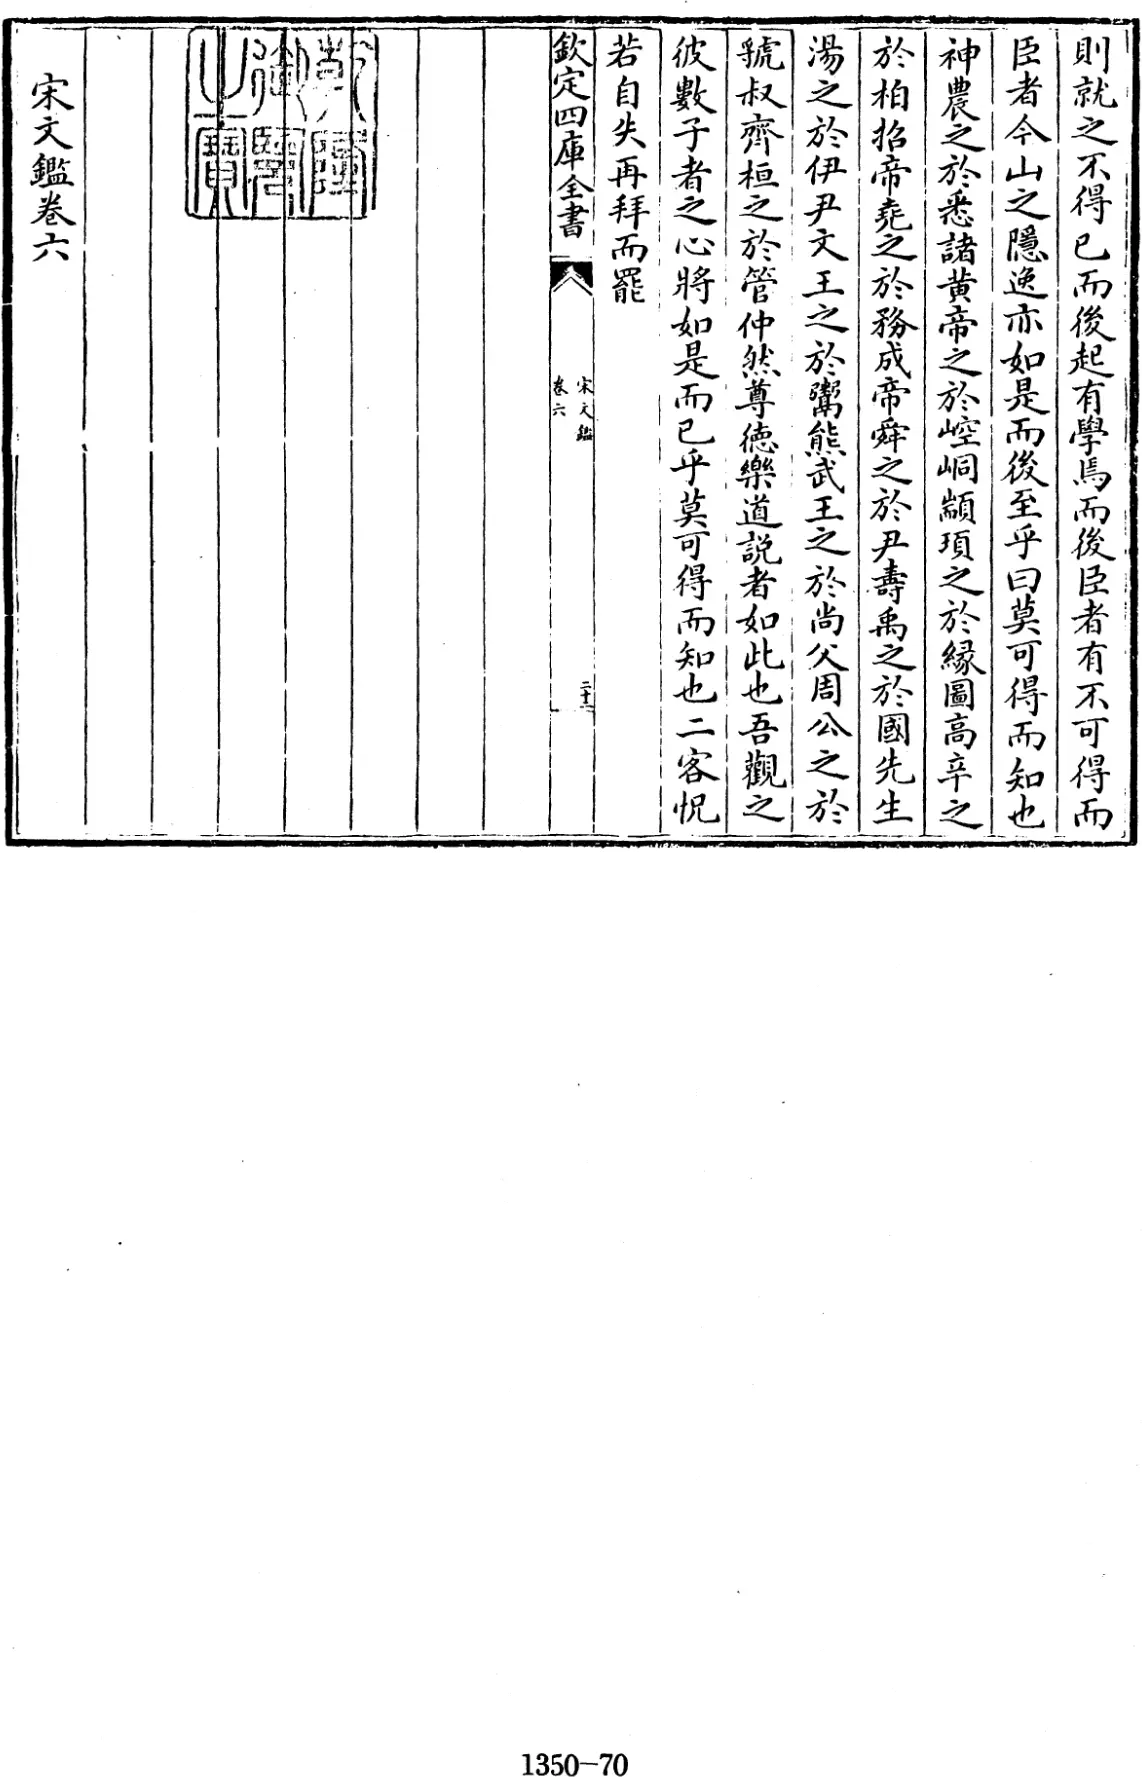 則就之不得已而後起有學焉而後臣者有不可得而
臣者今山之隱逸亦如是而後至乎曰莫可得而知也
神農之於悉諸黄帝之於崆峒顓頊之於緣圖高辛之
於柏招帝堯之於務成帝舜之於尹壽禹之於國先生
湯之於伊尹文王之於鬻熊武王之於尚父周公之於
虢叔齊桓之於管仲然尊徳樂道説者如此也吾觀之
彼數子者之心將如是而已乎莫可得而知也二客怳
若自失再拜而罷
欽定四庫全書
宋文鑑
卷六
二十一
乾隆
御覽
之寶
宋文鑑卷六
1350-70